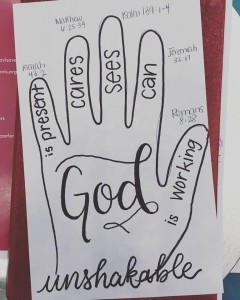 Isaiah
43:2
Matthew
6:25-34
Psalm 139:1-4
Jeremiah
32:17
Romans
8:28
is present
cares
sees
can
is working
God
unshakable